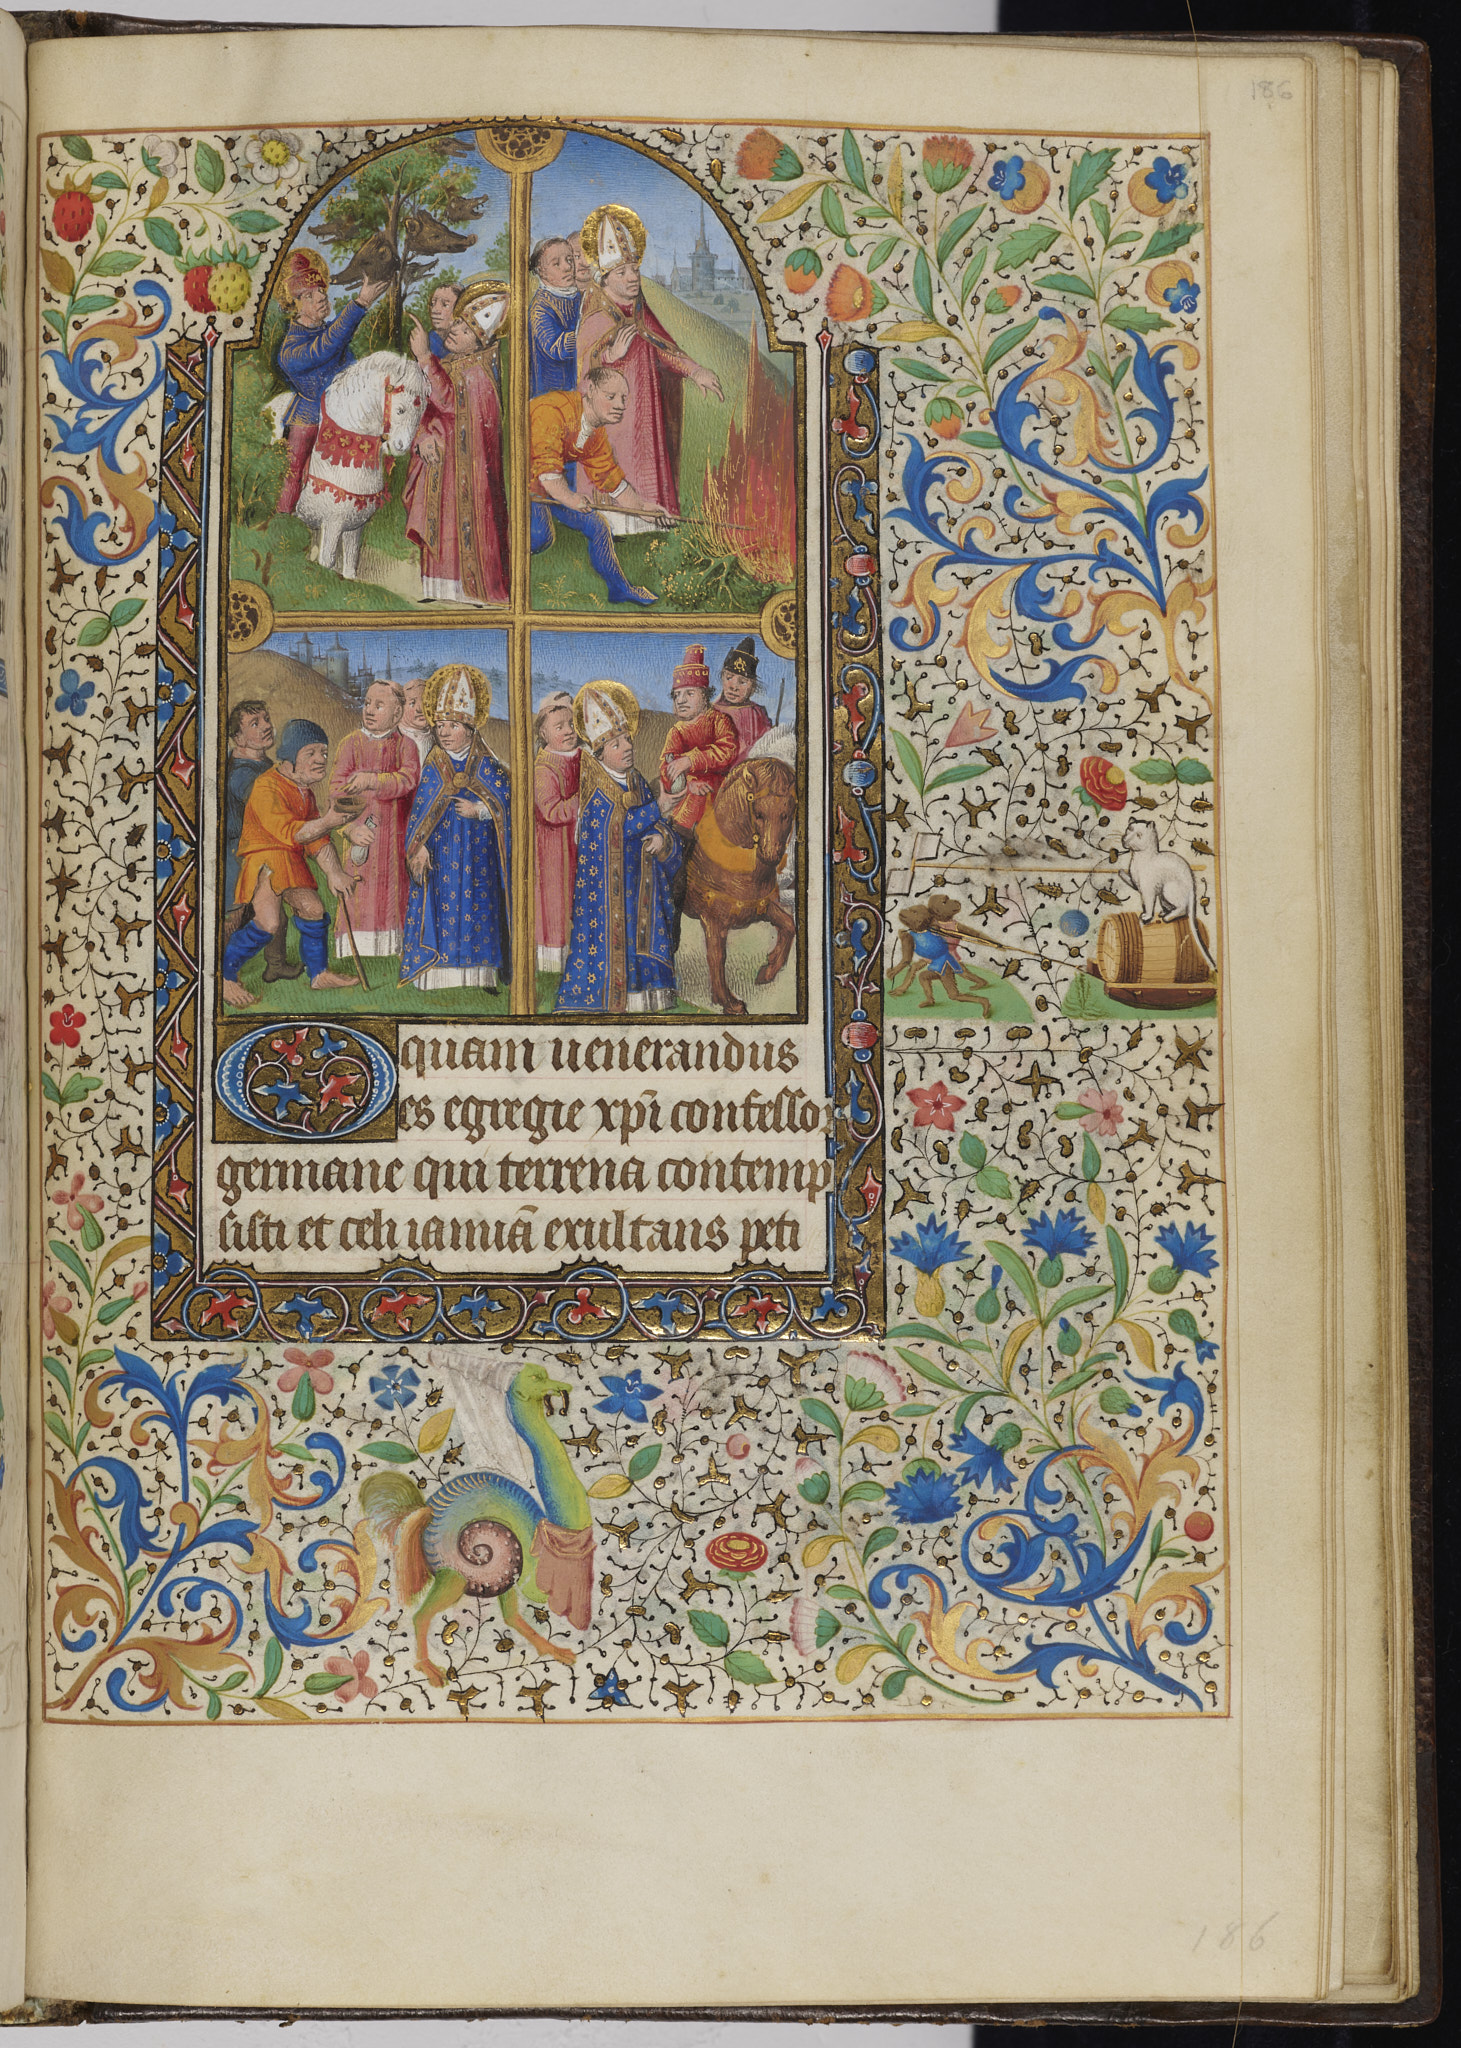 186
O quam uenerandus
es egregie xpı̄ confessor
germane qui terrena contemp
sisti et celi ianuā exultans peti
186